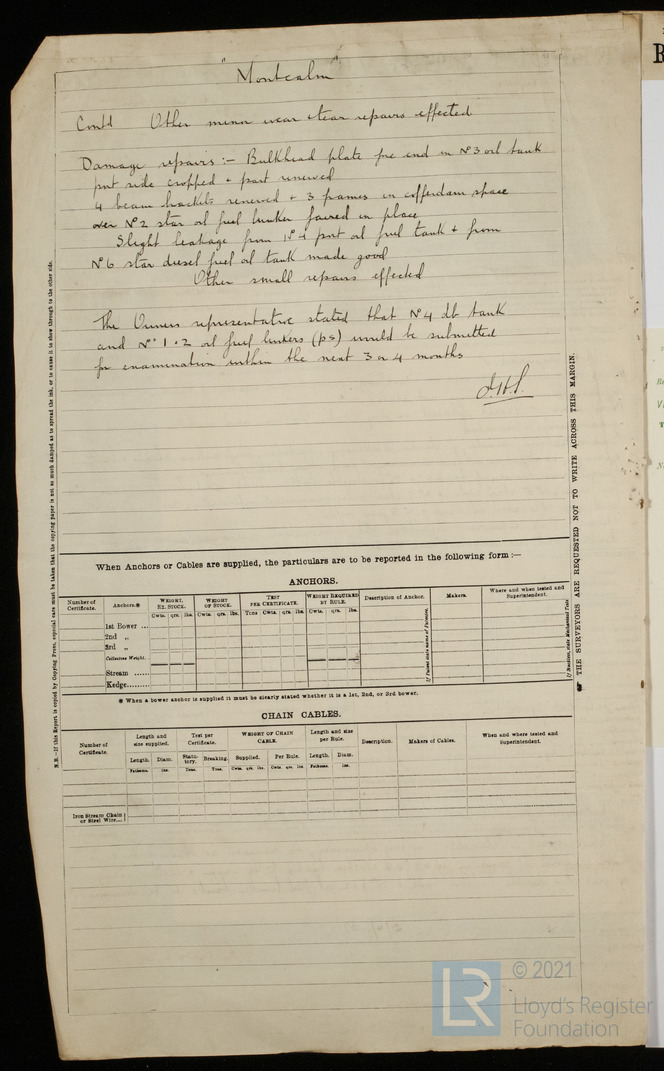 "Montcalm"
Contd Other minor wear & tear repairs effected
Damage repairs :- Bulkhead plate fre end in Nº3 oil tank
port side cropped & part renewed
4 beam brackets renewed & 3 frames in cofferdam space
over Nº2 star oil fuel bunker faired in place
Slight leakage from Nº4 port oil fuel tank & from
Nº6 star diesel fuel oil tank made good
Other small repairs effected
The Owners representative stated that Nº4 db tank
and Nºs 1 & 2 oil fuel bunkers (ps) would be submitted
for examination within the next 3 or 4 months
When Anchors or Cables are supplied, the particulars are to be reported in the following form :—
ANCHORS.
Number of Certificate. Anchors.* WEIGHT, EX. STOCK. WEIGHT OF STOCK. TEST PER CERTIFICATE. WEIGHT REQUIRED BY RULE. Description of Anchor. Makers. Where and when tested and Superintendent.
Cwts. qrs. lbs. Cwts. qrs. lbs. Tons Cwts. qrs. lbs. Cwts. qrs. lbs.
1st Bower ...
2nd „
3rd „
Collective Weight.
Stream ......
Kedge.......
* When a bower anchor is supplied it must be clearly stated whether it is a 1st, 2nd, or 3rd bower.
CHAIN CABLES.
Number of Certificate. Length and size supplied. Test per Certificate. WEIGHT OF CHAIN CABLE. Length and size per Rule. Description. Makers of Cables. When and where tested and Superintendent.
Length. Diam. Statutory. Breaking. Supplied. Per Rule. Length. Diam.
Fathoms. Ins. Tons. Tons. Cwts. qrs. lbs. Cwts. qrs. lbs. Fathoms. Ins.
Iron Stream Chain or Steel Wire...
N.B.—If this Report is copied by Copying Press, especial care must be taken that the copying paper is not so much damped as to spread the ink, or to cause it to show through to the other side.
THE SURVEYORS ARE REQUESTED NOT TO WRITE ACROSS THIS MARGIN.
R
LR
© 2021
Lloyd's Register
Foundation